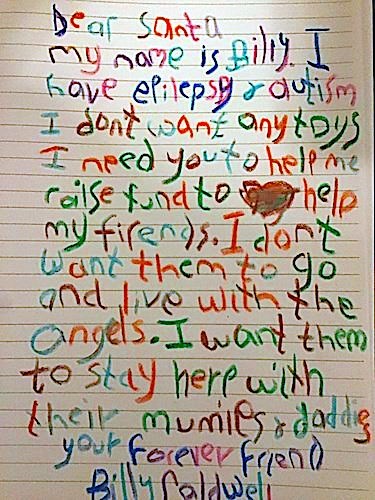 Dear Santa
my name is Billy. I
have epilepsy & autism
I dont want any toys
I need you to help me
raise fund to help
my firends. I dont
want them to go
and live with the
angels. I want them
to stay here with
their mumies & daddies
your forever friend
Billy Caldwell